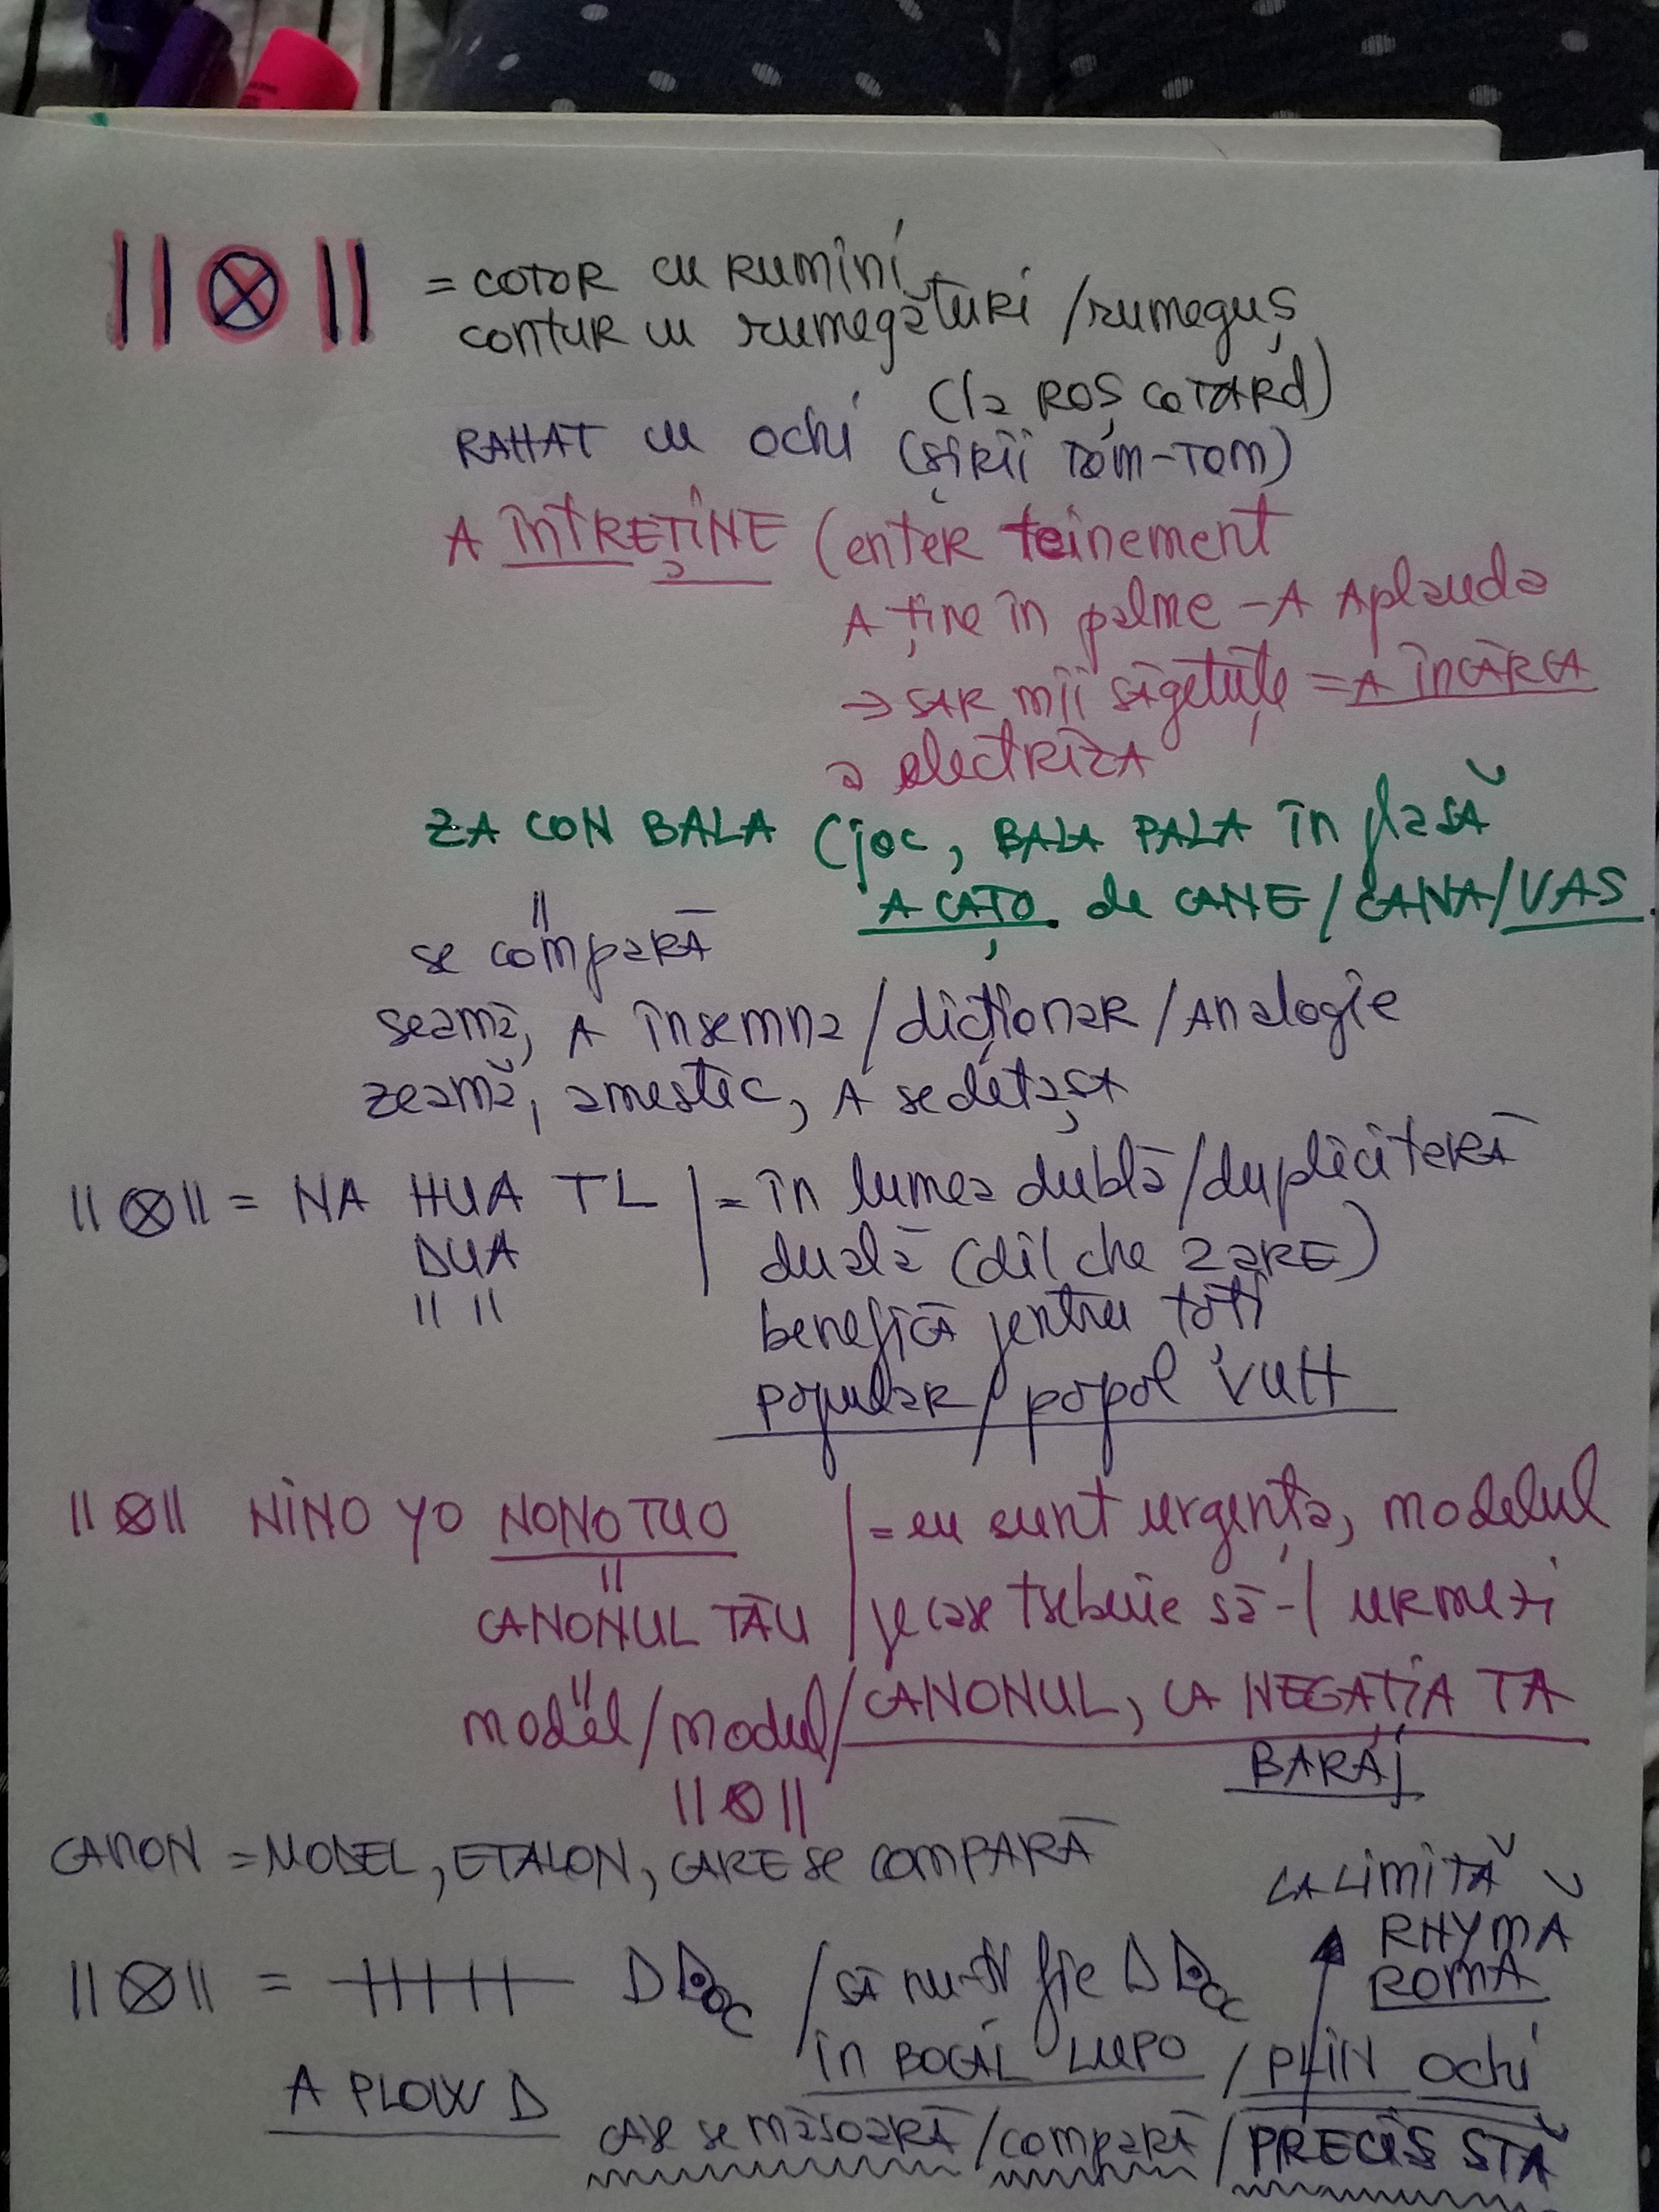 || ⊗ || = COTOR cu RUMINI,
CONTUR cu rumegături / rumeguș
(la ROȘ COTARD)
RAHAT cu ochi (știrii TOM-TOM)
A ÎNTREȚINE (enter teinement
A ține în palme - A Aplauda
→ SAR mii săgetuțe = A ÎNCĂRCA
a electriza
ZA CON BALA (joc, BALA PALA în plasă
A CAȚO. de CANE / CANA / VAS.
||
se compară
seamă, A însemna / dicționar / Analogie
zeamă, amestec, A se detașa
|| ⊗ || = NA HUA TL | = în lumea dublă / dupliciteră
DUA | duală (dil che zaRE)
|| || benefică pentru toți
popular / popol VUH
|| ⊗ || NINO YO NONO TUO | = eu sunt urgența, modelul
||
CANONUL TĂU | pe care trebuie să-l urmezi
||
model / modul / CANONUL, CA NEGAȚIA TA
|| ⊗ || BARAJ
CANON = MODEL, ETALON, CARE SE COMPARĂ
LA LIMITĂ
RHYMĂ
ROMA
|| ⊗ || = / să nu-ți fie
în BOCAL LUPO / PLIN ochi
A PLOW D
care se măsoară / compară / PRECIS STĂ